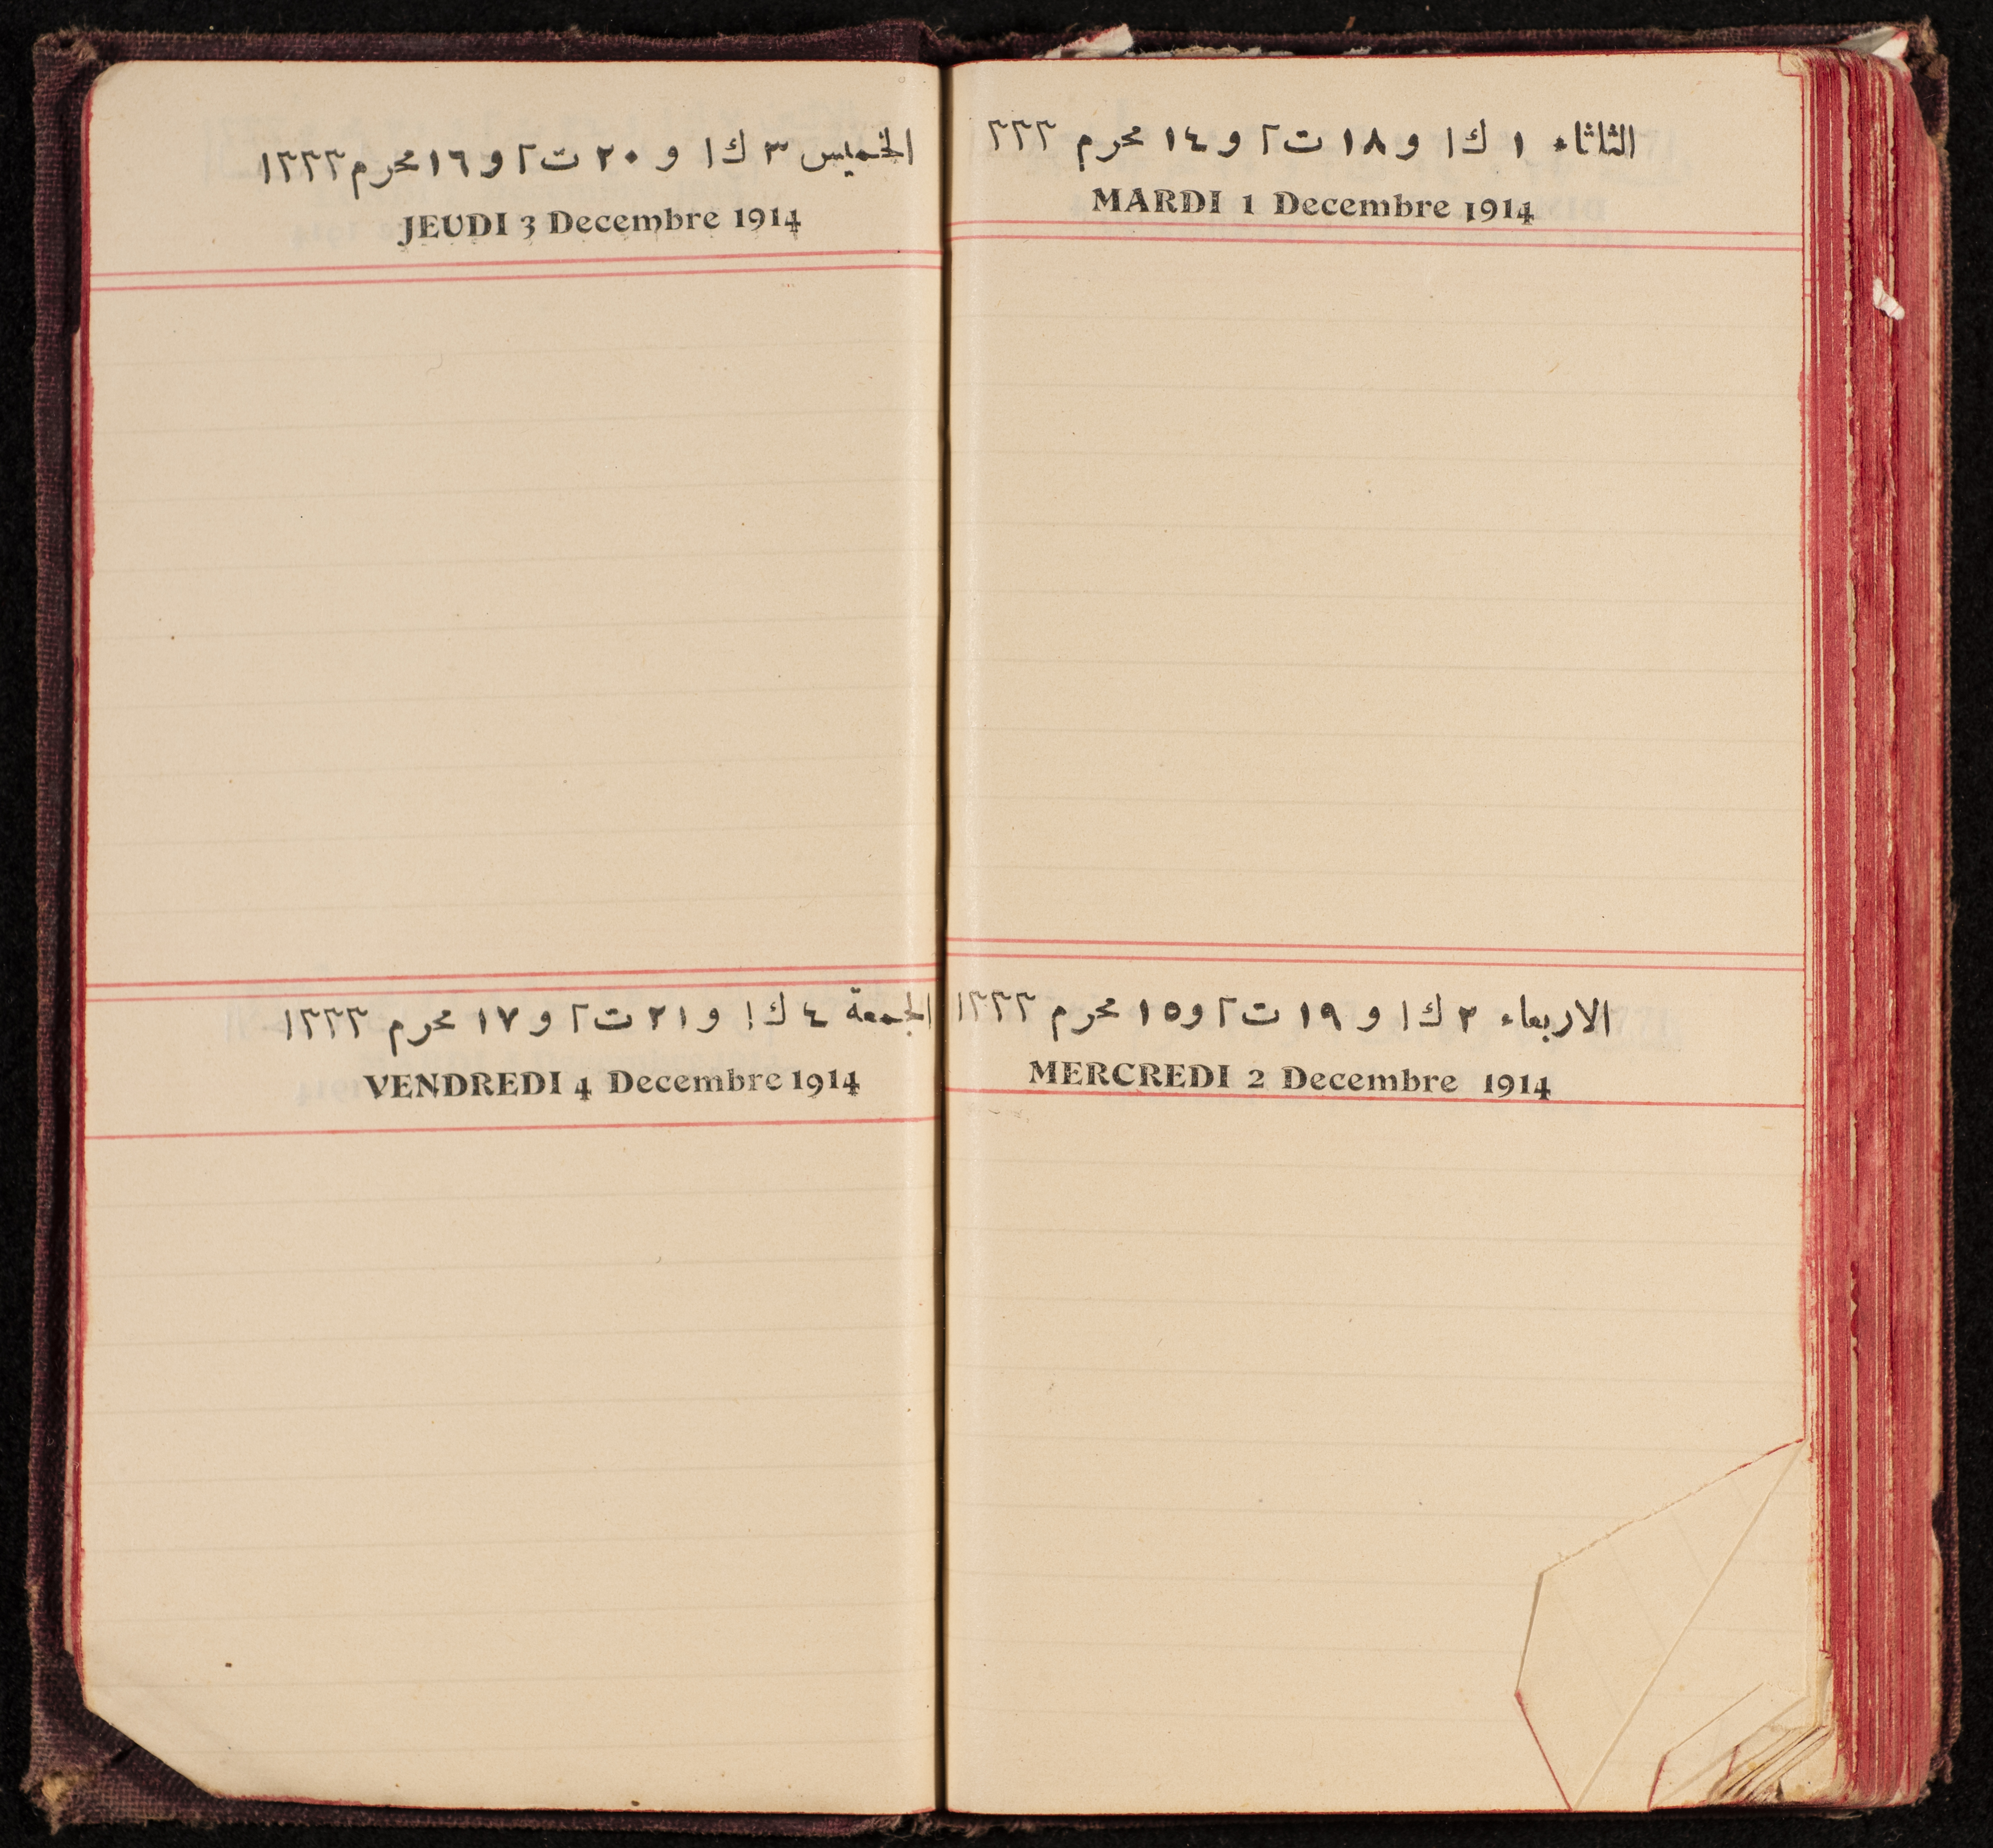 الثلاثاء ١ ك١ و ١٨ ت٢ و ١٤ محرم ٣٣٣
MARDI 1 Decembre 1914
الاربعاء ٢ ك١ و ١٩ ت٢ و١٥ محرم ١٣٣٣
MERCREDI 2 Decembre 1914
الخميس ٣ ك١ و ٢٠ ت٢ و ١٦ محرم ١٣٣٣
JEUDI 3 Decembre 1914
الجمعة ٤ ك١ و ٢١ ت٢ و ١٧ محرم ١٣٣٣
VENDREDI 4 Decembre 1914